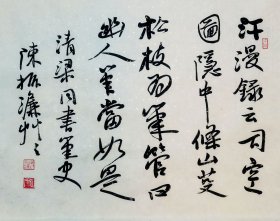 汗漫錄云司空
圖隱中條山芟
松枝為筆管曰
幽人筆當如是
清梁同書筆史
陳振濂艸